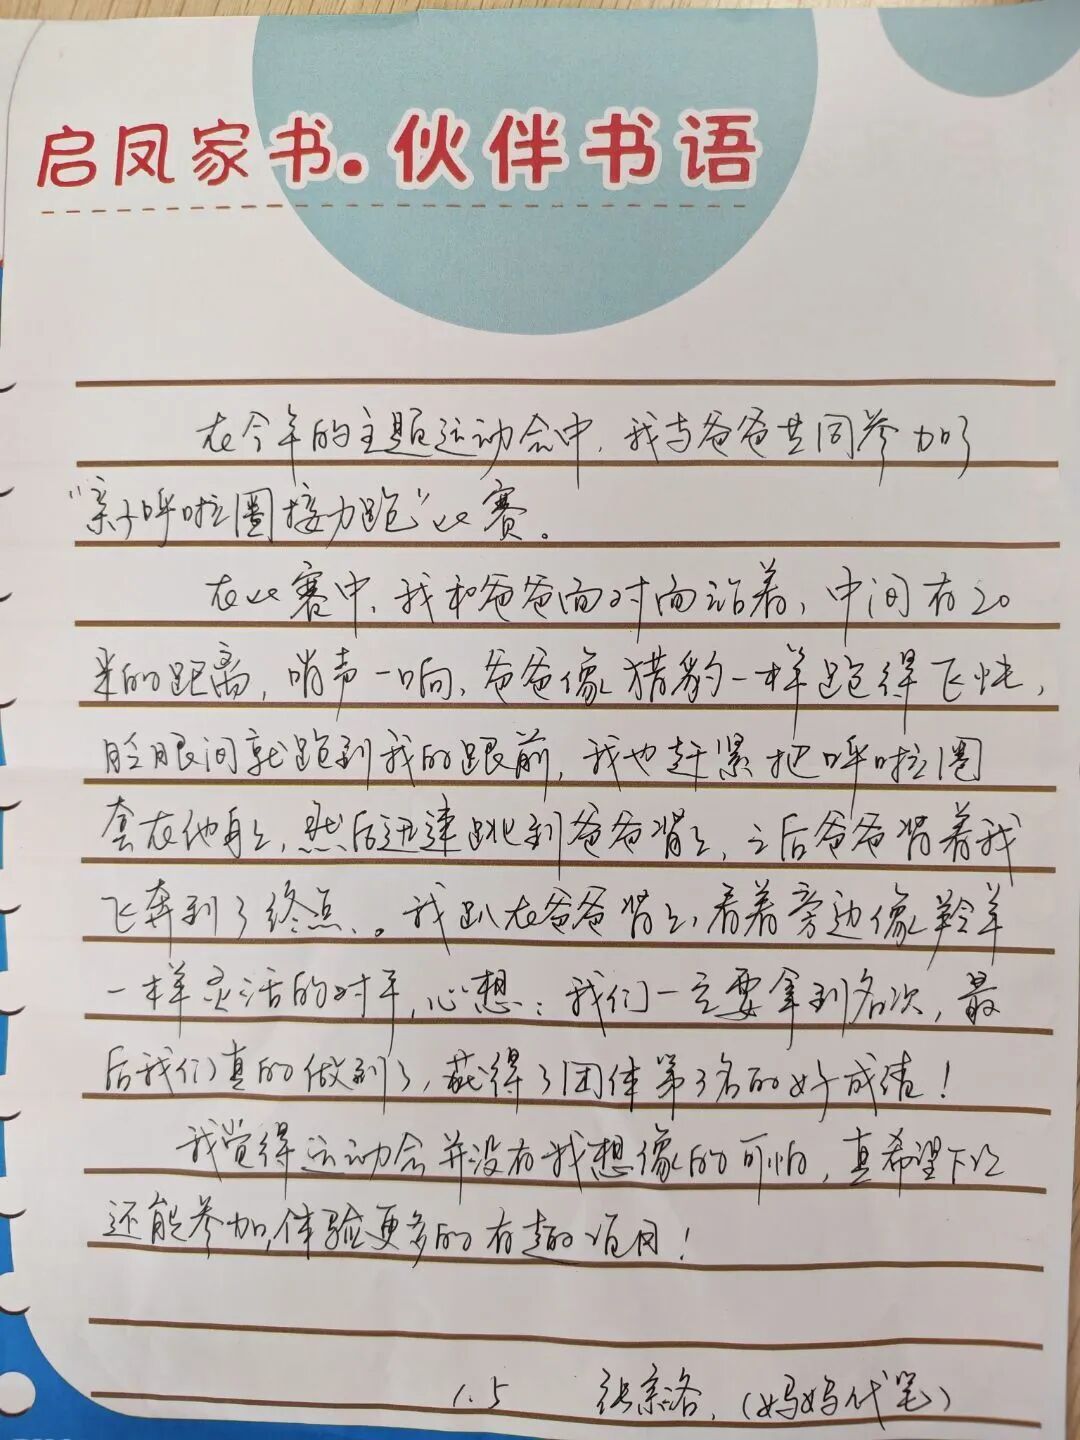 启凤家书·伙伴书语
在今年的主题运动会中，我与爸爸共同参加了
“亲子呼啦圈接力跑”比赛。
在比赛中，我和爸爸面对面站着，中间有20
米的距离，哨声一响，爸爸像猎豹一样跑得飞快，
眨眼间就跑到我的跟前，我也赶紧把呼啦圈
套在他身上，然后迅速跳到爸爸背上，之后爸爸背着我
飞奔到了终点、。我趴在爸爸背上，看着旁边像羚羊
一样灵活的对手，心想：我们一定要拿到名次，最
后我们真的做到了，获得了团体第3名的好成绩！
我觉得运动会并没有我想像的可怕，真希望下次
还能参加，体验更多的有趣项目！
1.5 张宗洛，（妈妈代笔）